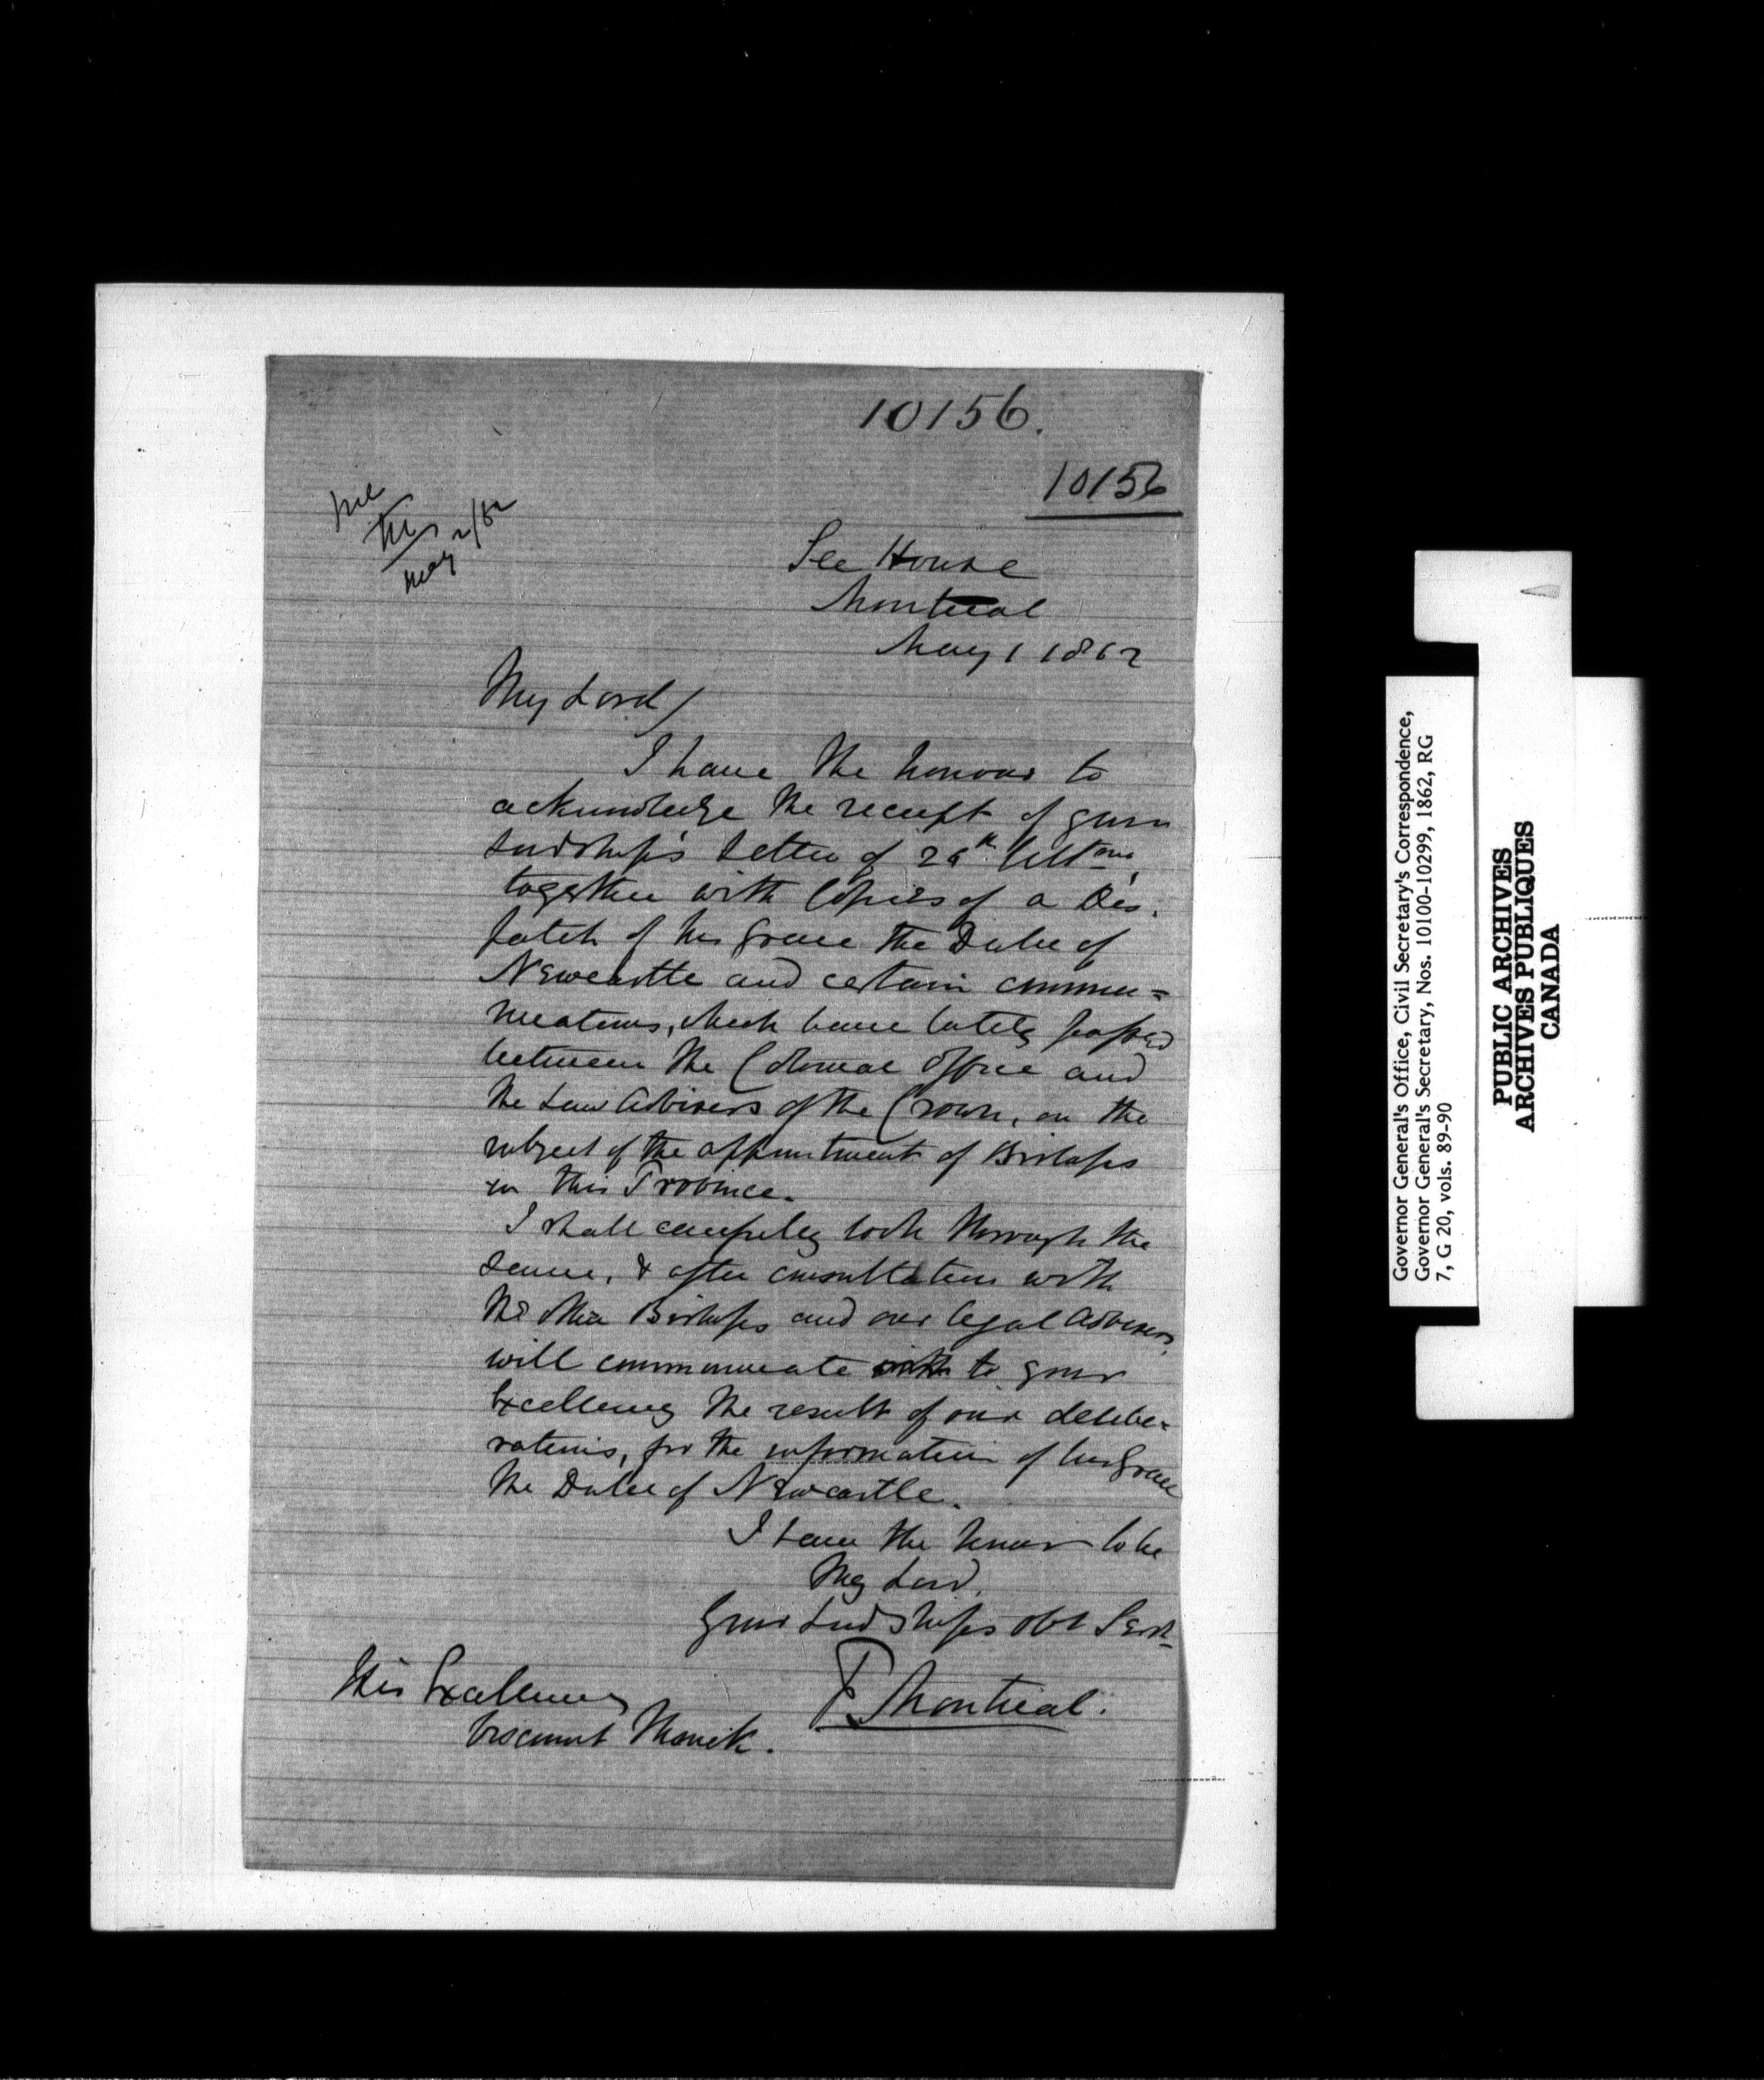 10156.
10156
May 2/62
See House
Montreal
May 1 1862
My Lord/
I have the honour to
acknowledge the receipt of your
Lordship's letter of 26th Ultmo,
together with Copies of a Des-
patch of his Grace the Duke of
Newcastle and certain commu=
nications, which have lately passed
between the Colonial Office and
the Law Advisers of the Crown, on the
subject of the appointment of Bishops
in this Province.
I shall carefully look through the
same, & after consultation with
the other Bishops and our legal advisers
will communicate to your
Excellency the result of our delibe-
rations, for the information of his Grace
the Duke of Newcastle.
I have the honour to be
My Lord,
Your Lordships obt Servt
F. Montreal.
His Excellency
Viscount Monck.
Governor General's Office, Civil Secretary's Correspondence,
Governor General's Secretary, Nos. 10100-10299, 1862, RG
7, G 20, vols. 89-90
PUBLIC ARCHIVES
ARCHIVES PUBLIQUES
CANADA